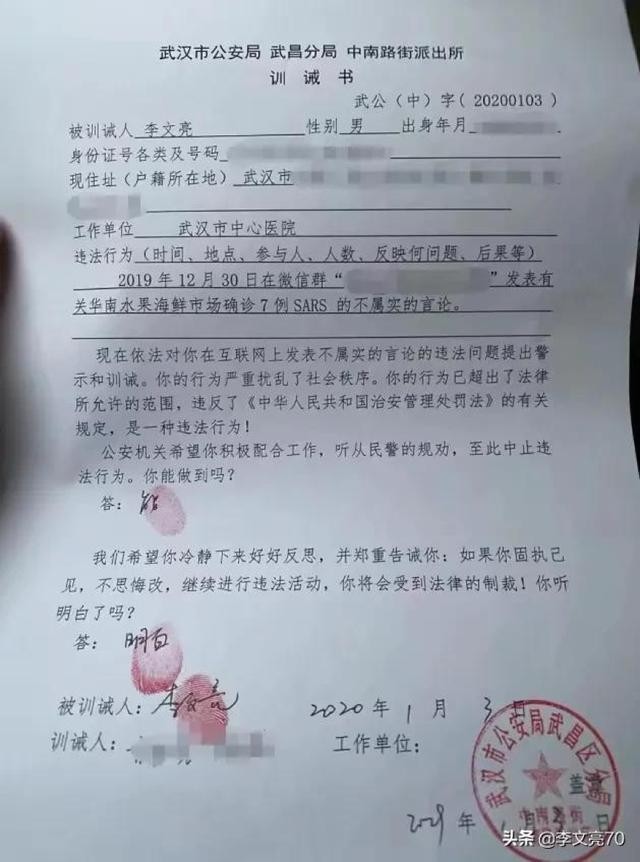 武汉市公安局 武昌分局 中南路街派出所
训 诫 书
武公（中）字（ 20200103 ）
被训诫人 李文亮 性别 男 出身年月
身份证号各类及号码
现住址（户籍所在地） 武汉市
工作单位 武汉市中心医院
违法行为（时间、地点、参与人、人数、反映何问题、后果等）
2019 年 12 月 30 日在微信群“ ”发表有
关华南水果海鲜市场确诊 7 例 SARS 的不属实的言论。
现在依法对你在互联网上发表不属实的言论的违法问题提出警
示和训诫。你的行为严重扰乱了社会秩序。你的行为已超出了法律
所允许的范围，违反了《中华人民共和国治安管理处罚法》的有关
规定，是一种违法行为！
公安机关希望你积极配合工作，听从民警的规劝，至此中止违
法行为。你能做到吗？
答： 能
我们希望你冷静下来好好反思，并郑重告诫你：如果你固执己
见，不思悔改，继续进行违法活动，你将会受到法律的制裁！你听
明白了吗？
答： 明白
被训诫人：李文亮 2020 年 1 月 3 日
训诫人： 工作单位：
武汉市公安局武昌区分局
中南路街
盖章
年 月 日
头条 @李文亮70